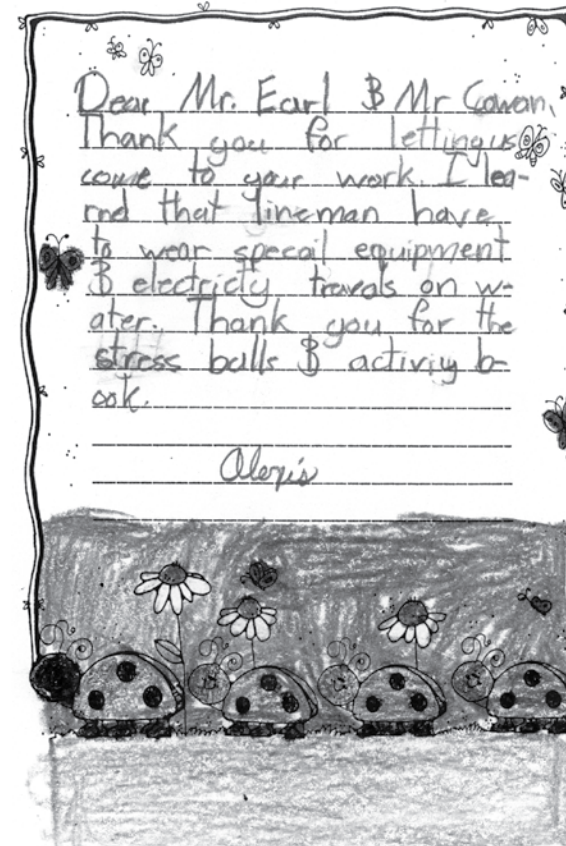 Dear Mr. Earl & Mr Cowan,
Thank you for letting us
come to your work. I lea-
rnd that lineman have
to wear specail equipment
& electricty travals on w-
ater. Thank you for the
stress balls & activiy b-
ook.
Alexis